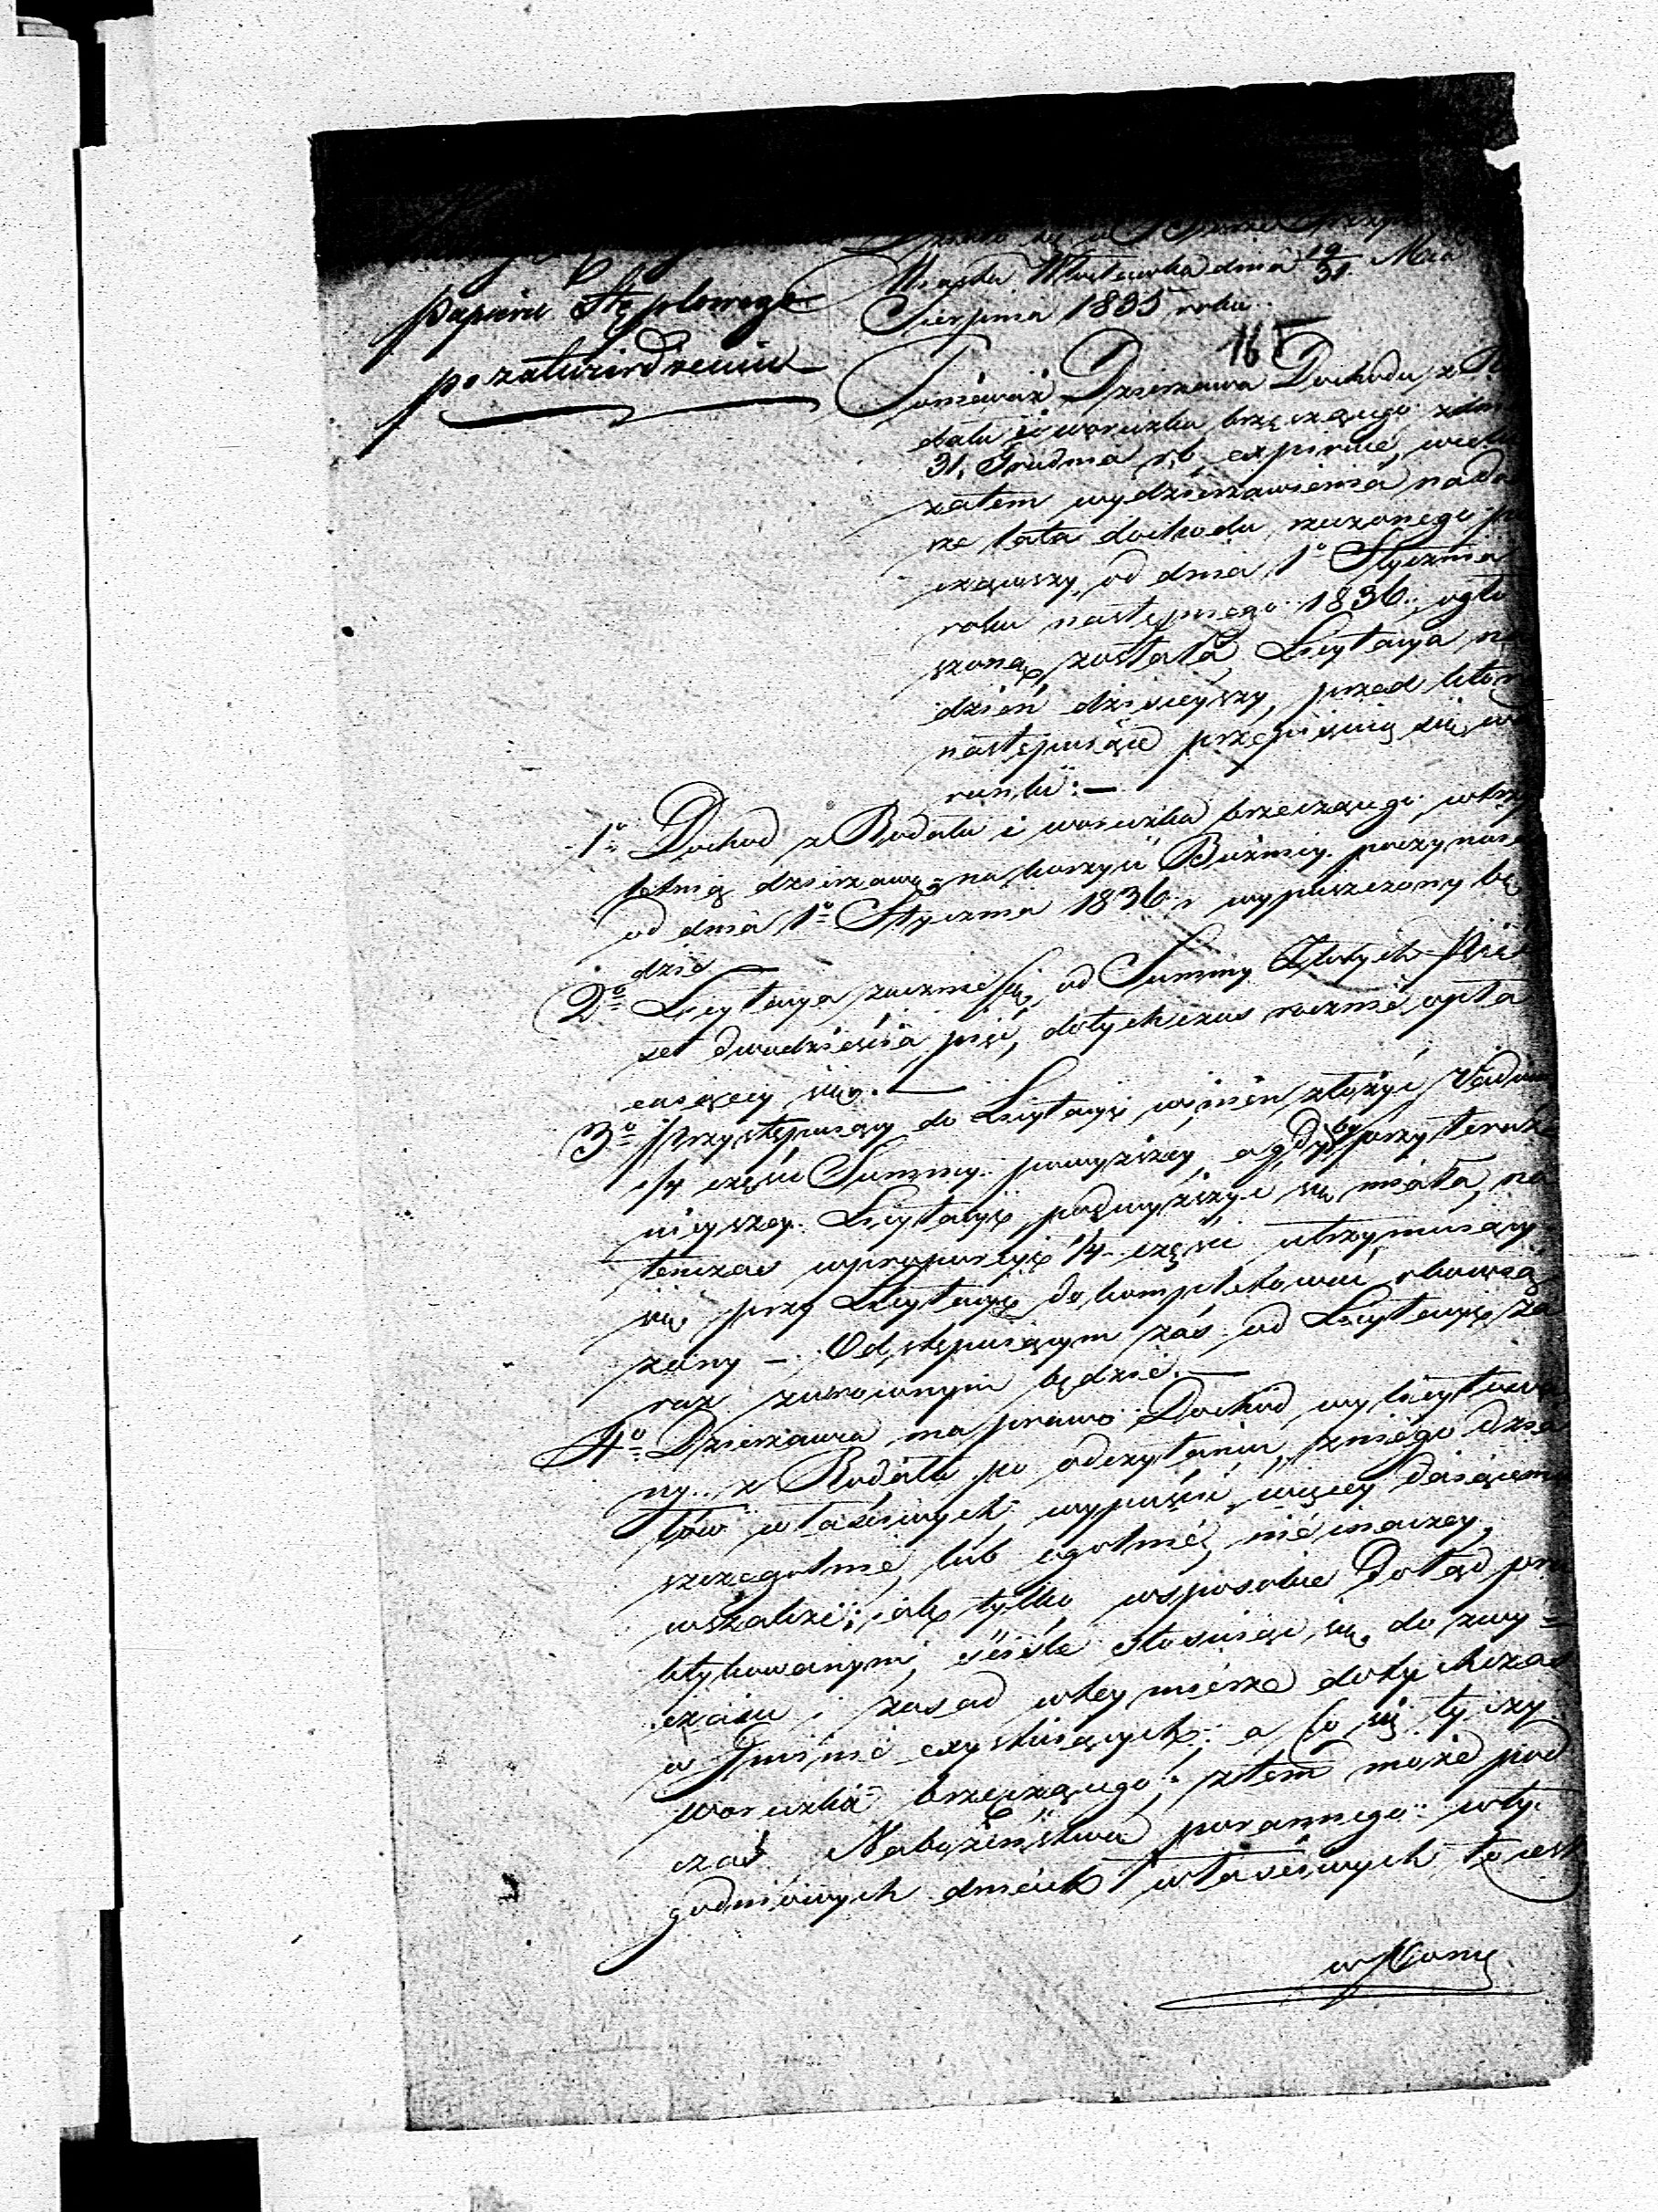 Papieru Stęplowego
po zatwierdzeniu
Działo się w Biórze
Miasta Włocławka dnia 19/31 Mca
Sierpnia 1835 roku.
165
Ponieważ Dzierżawa Dochodu z R
dału i woreczka brzęczącego z dn
31. Grudnia r. b. expiruie, w celu
zatem wydzierżawienia nadal
sze lata dochodu rzeczonego po
cząwszy od dnia 1o Stycznia
roku następnego 1836., ogło
szoną została Licytacya na
dzień dzisieyszy, przed którą
następuiące przepisuią się wa
runki:—
1o Dochod z Rodału i woreczka brzęczącego, w trzy
letnią dzierżawę na korzyść Bóźnicy poczynając
od dnia 1o Stycznia 1836 r wypuszczony bę
dzie —
2o Licytacya zacznie się, od Summy Złotych Pięć
set dwadzieścia pięć, dotychczas rocznie opła
caiącey się. —
3o Przystępuiący do Licytacyi winien złożyć Vadium
1/4 części Summy powyższey, a gdyby przy teraz
nieyszey Licytacyi podwyższyć się miała, na
tenczas w proporcyi 1/4 części utrzymuiący
się przy Licytacyi do kompletować obowią
zany —. Odstępuiącym zaś od Licytacyi za
raz zwroconym będzie. —
4o Dzierżawca ma prawo Dochod wylicytowa
ny z Rodału po odczytaniu z niego dzia
łów właściwych wypuścić więcey daiącemu
szczegolnie, lub ogolnie, nie inaczey,
wszakże; iak tylko w sposobie Dotąd pra
ktykowanym, ściśle stosuiąc się do zwy=
czaiu i zasad w tey mierze dotychczas
w Gminie exystuiących; a co się tyczy
woreczka brzęczącego, z tem może pod
czas Nabożeństwa porannego w ty
godniowych dniach właściwych to iest
w Pon